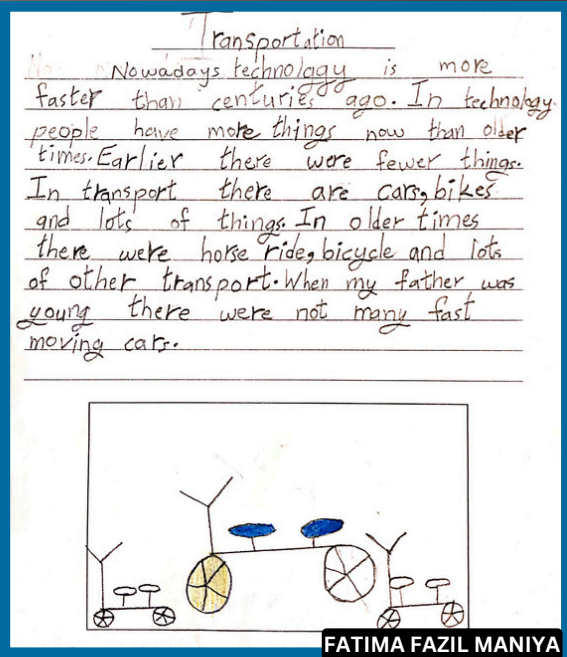 Transportation
Nowadays technology is more
faster than centuries ago. In technology
people have more things now than older
times. Earlier there were fewer things.
In transport there are cars, bikes
and lots of things. In older times
there were horse ride, bicycle and lots
of other transport. When my father was
young there were not many fast
moving cars.
FATIMA FAZIL MANIYA